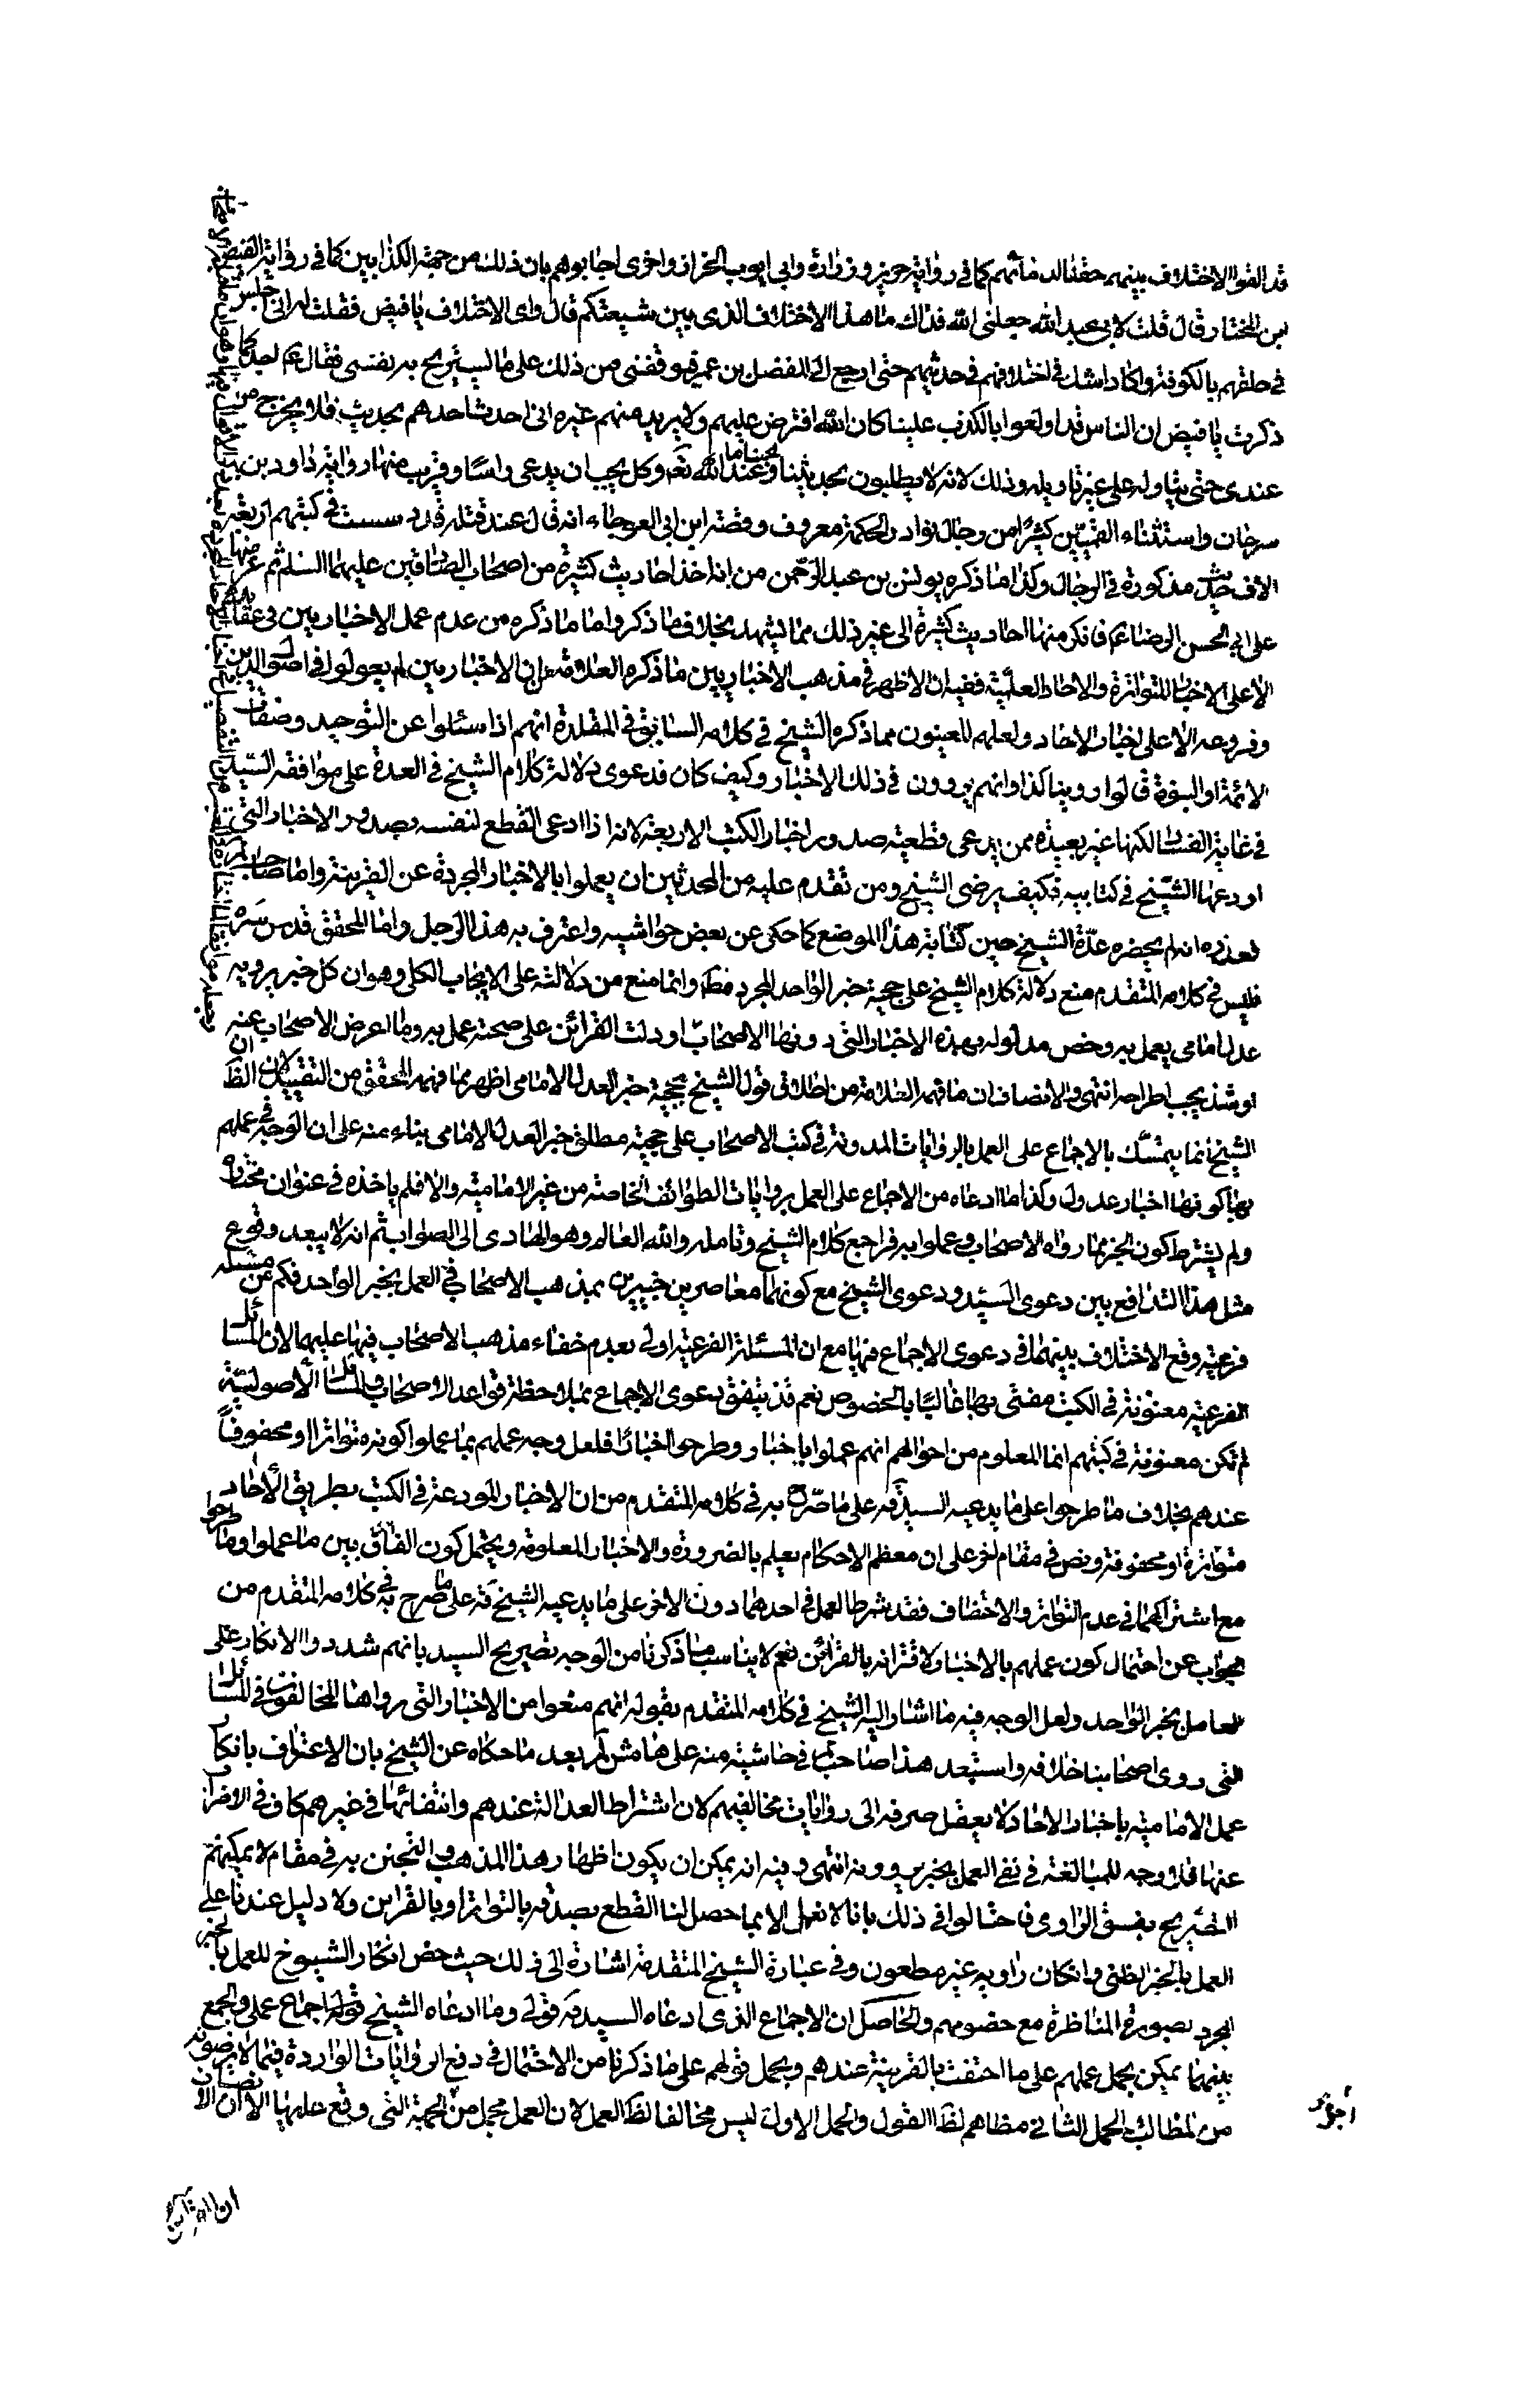 قد القوا الاختلاف بينهم حقنا لدمائهم كما في رواية حريز و زرارة وابي ايوب الخزاز واخرى اجابوهم بان ذلك من جهة الكذابين كما في رواية الفيض
بن المختار قال قلت لابي عبد الله جعلني الله فداك ما هذا الاختلاف الذي بين شيعتكم قال واي الاختلاف يا فيض فقلت له اني اجلس
في حلقهم بالكوفة واكاد اشك في اختلافهم في حديثهم حتى ارجع الى المفضل بن عمر فيوقفني من ذلك على ما تستريح به نفسي فقال ع اجل كما
ذكرت يا فيض ان الناس قد اولعوا بالكذب علينا كان الله افترض عليهم ولا يريد منهم غيره اني احدث احدهم بحديث فلا يخرج من
عندي حتى يتاوله على غير تاويله وذلك لانه لا يطلبون بحديثنا وبحبنا ما عند الله تع وكل يحب ان يدعى راسا وقريب منها رواية داود بن
سرحان واستثناء القميين كثيرا من رجال نوادر الحكمة معروف وقصة ابن ابي العوجاء انه قال عند قتله قد دسست في كتبهم اربعة
الاف حديث مذكورة في الرجال وكذا ما ذكره يونس بن عبد الرحمن من انه اخذ احاديث كثيرة من اصحاب الصادقين عليهما السلم ثم عرضها
على ابي الحسن الرضا ع فانكر منها احاديث كثيرة الى غير ذلك مما يشهد بخلاف ما ذكروا ما ما ذكره من عدم عمل الاخباريين في عقائدهم
الا على الاخبار المتواترة والاحاد العلمية ففيه ان الاظهر في مذهب الاخباريين ما ذكره العلامة من ان الاخباريين لم يعولوا في اصول الدين
وفروعه الا على اخبار الاحاد ولعلهم المعنيون مما ذكره الشيخ في كلامه السابق في المقلدة انهم اذا سئلوا عن التوحيد وصفات
الائمة او النبوة قالوا روينا كذا وانهم يروون في ذلك الاخبار وكيف كان فدعوى دلالة كلام الشيخ في العدة على موافقه السيد
في غاية الفساد لكنها غير بعيدة ممن يدعي قطعية صدور اخبار الكتب الاربعة لانه اذا ادعى القطع لنفسه بصدور الاخبار التي
اودعها الشيخ في كتابيه فكيف يرضى الشيخ ومن تقدم عليه من المحدثين ان يعملوا بالاخبار المجردة عن القرينة واما صاحب لم
فعذره انه لم يحضره عدة الشيخ حين كتابة هذا الموضع كما حكى عن بعض حواشيه واعترف به هذا الرجل واما المحقق قدس سره
فليس في كلامه المتقدم منع دلالة كلام الشيخ على حجية خبر الواحد المجرد مط وانما منع من دلالته على الايجاب الكلي وهو ان كل خبر يرويه
عدل امامي يعمل به وخص مدلوله بهذه الاخبار التي دونها الاصحاب او دلت القرائن على صحته عمل به وما اعرض الاصحاب عنه
او شذ يجب اطراحه انتهى والانصاف ان ما فهمه العلامة من اطلاق قول الشيخ بحجية خبر العدل الامامي اظهر مما فهمه المحقق من التقييد لان الظ ان
الشيخ انما يتمسك بالاجماع على العمل بالروايات المدونة في كتب الاصحاب على حجية مطلق خبر العدل الامامي بناء منه على ان الوجه في عملهم
بها كونها اخبار عدول وكذا ما ادعاه من الاجماع على العمل بروايات الطوائف الخاصة من غير الامامية والا فلم ياخذه في عنوان مختاره
ولم يشترط كون الخبر مما رواه الاصحاب وعملوا به فراجع كلام الشيخ وتامله والله العالم وهو الهادي الى الصواب ثم انه لا يبعد وقوع
مثل هذا التدافع بين دعوى السيد ودعوى الشيخ مع كونهما معاصرين خبيرين بمذهب الاصحاب في العمل بخبر الواحد فكم من مسئله
فرعية وقع الاختلاف بينهما في دعوى الاجماع فيها مع ان المسئلة الفرعية اولى بعدم خفاء مذهب الاصحاب فيها عليهما لان المسائل
الفرعية معنونة في الكتب مفتى بها غالبا بالخصوص نعم قد يتفق دعوى الاجماع بملاحظة قواعد الاصحاب والمسائل الاصولية
لم تكن معنونة في كتبهم انما المعلوم من احوالهم انهم عملوا باخبار وطرحوا اخبارا فلعل وجه عملهم بما عملوا كونه متواترا او محفوفا
عندهم بخلاف ما طرحوا على ما يدعيه السيد قه على ما صرح به في كلامه المتقدم من ان الاخبار المودعة في الكتب بطريق الاحاد
متواترة او محفوفة ونص في مقام اخر على ان معظم الاحكام يعلم بالضرورة والاخبار المعلومة ويحتمل كون الفارق بين ما عملوا وما طرحوا
مع اشتراكهما في عدم التواتر والاحتفاف فقد شرط العمل في احدهما دون الاخر على ما يدعيه الشيخ قه على ما صرح به في كلامه المتقدم من
الجواب عن احتمال كون عملهم بالاخبار لاقترانه بالقرائن نعم لا يناسب ما ذكرنا من الوجه تصريح السيد بانهم شددوا الانكار على
العامل بخبر الواحد ولعل الوجه فيه ما اشار اليه الشيخ في كلامه المتقدم بقوله انهم منعوا من الاخبار التي رواها المخالفون في المسائل
التي روى اصحابنا خلافه واستبعد هذا صاحب لم في حاشية منه على هامش لم بعد ما حكاه عن الشيخ بان الاعتراف بانكار
عمل الامامية باخبار الاحاد لا يعقل صرفه الى روايات مخالفيهم لان اشتراط العدالة عندهم وانتفائها في غيرهم كاف في الاضراب
عنها فلا وجه للمبالغة في نفي العمل بخبر يروونه انتهى وفيه انه يمكن ان يكون اظهار هذا المذهب والتجنن به في مقام لا يمكنهم
التصريح بفسق الراوي فاحتالوا في ذلك بانا لا نعمل الا بما حصل لنا القطع بصدقه بالتواتر او بالقراين ولا دليل عندنا على
العمل بالخبر الظني وانكان راويه غير مطعون وفي عبارة الشيخ المتقدمة اشارة الى ذلك حيث خص انكار الشيوخ للعمل بالخبر
المجرد بصورة المناظرة مع خصومهم والحاصل ان الاجماع الذي ادعاه السيد قه قولي وما ادعاه الشيخ قه اجماع عملي والجمع
بينهما يمكن بحمل عملهم على ما احتفت بالقرينة عندهم وبحمل قولهم على ما ذكرنا من الاحتمال في دفع الروايات الواردة فيما لا يرضونه
من المطالب والحمل الثاني مخالف لظ القول والحمل الاول ليس مخالفا لظ العمل لان العمل مجمل من الجهة التي وقع عليها الا ان الانصاف ان